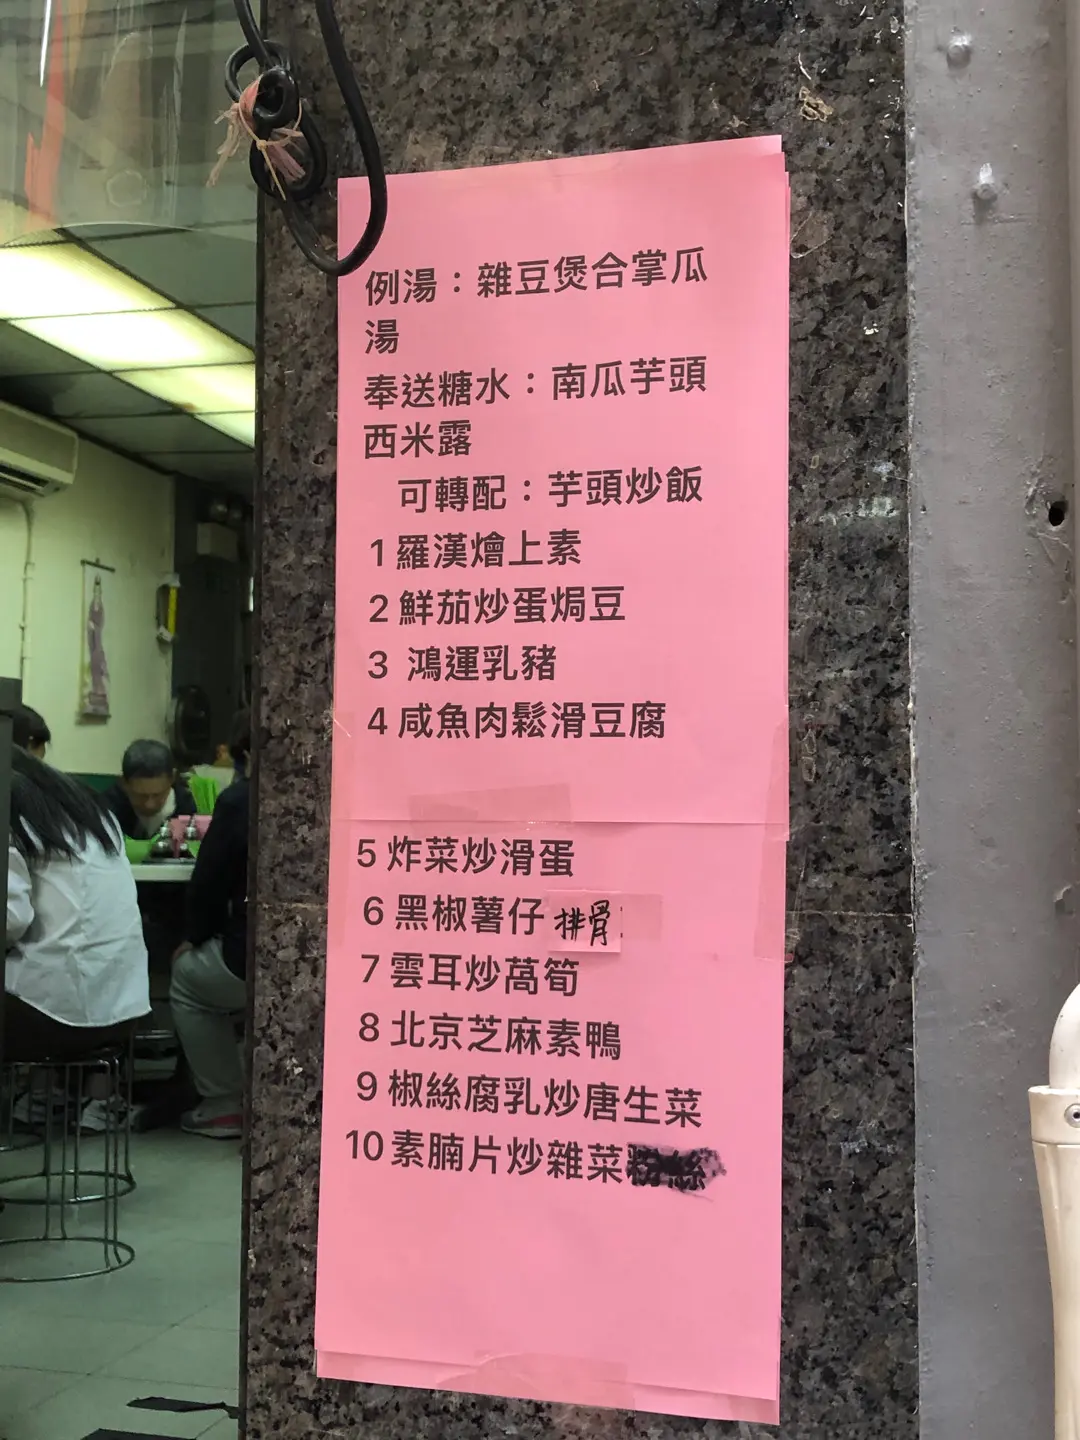 例湯：雜豆煲合掌瓜
湯
奉送糖水：南瓜芋頭
西米露
可轉配：芋頭炒飯
1 羅漢燴上素
2 鮮茄炒蛋焗豆
3 鴻運乳豬
4 咸魚肉鬆滑豆腐
5 炸菜炒滑蛋
6 黑椒薯仔排骨
7 雲耳炒萵筍
8 北京芝麻素鴨
9 椒絲腐乳炒唐生菜
10 素腩片炒雜菜